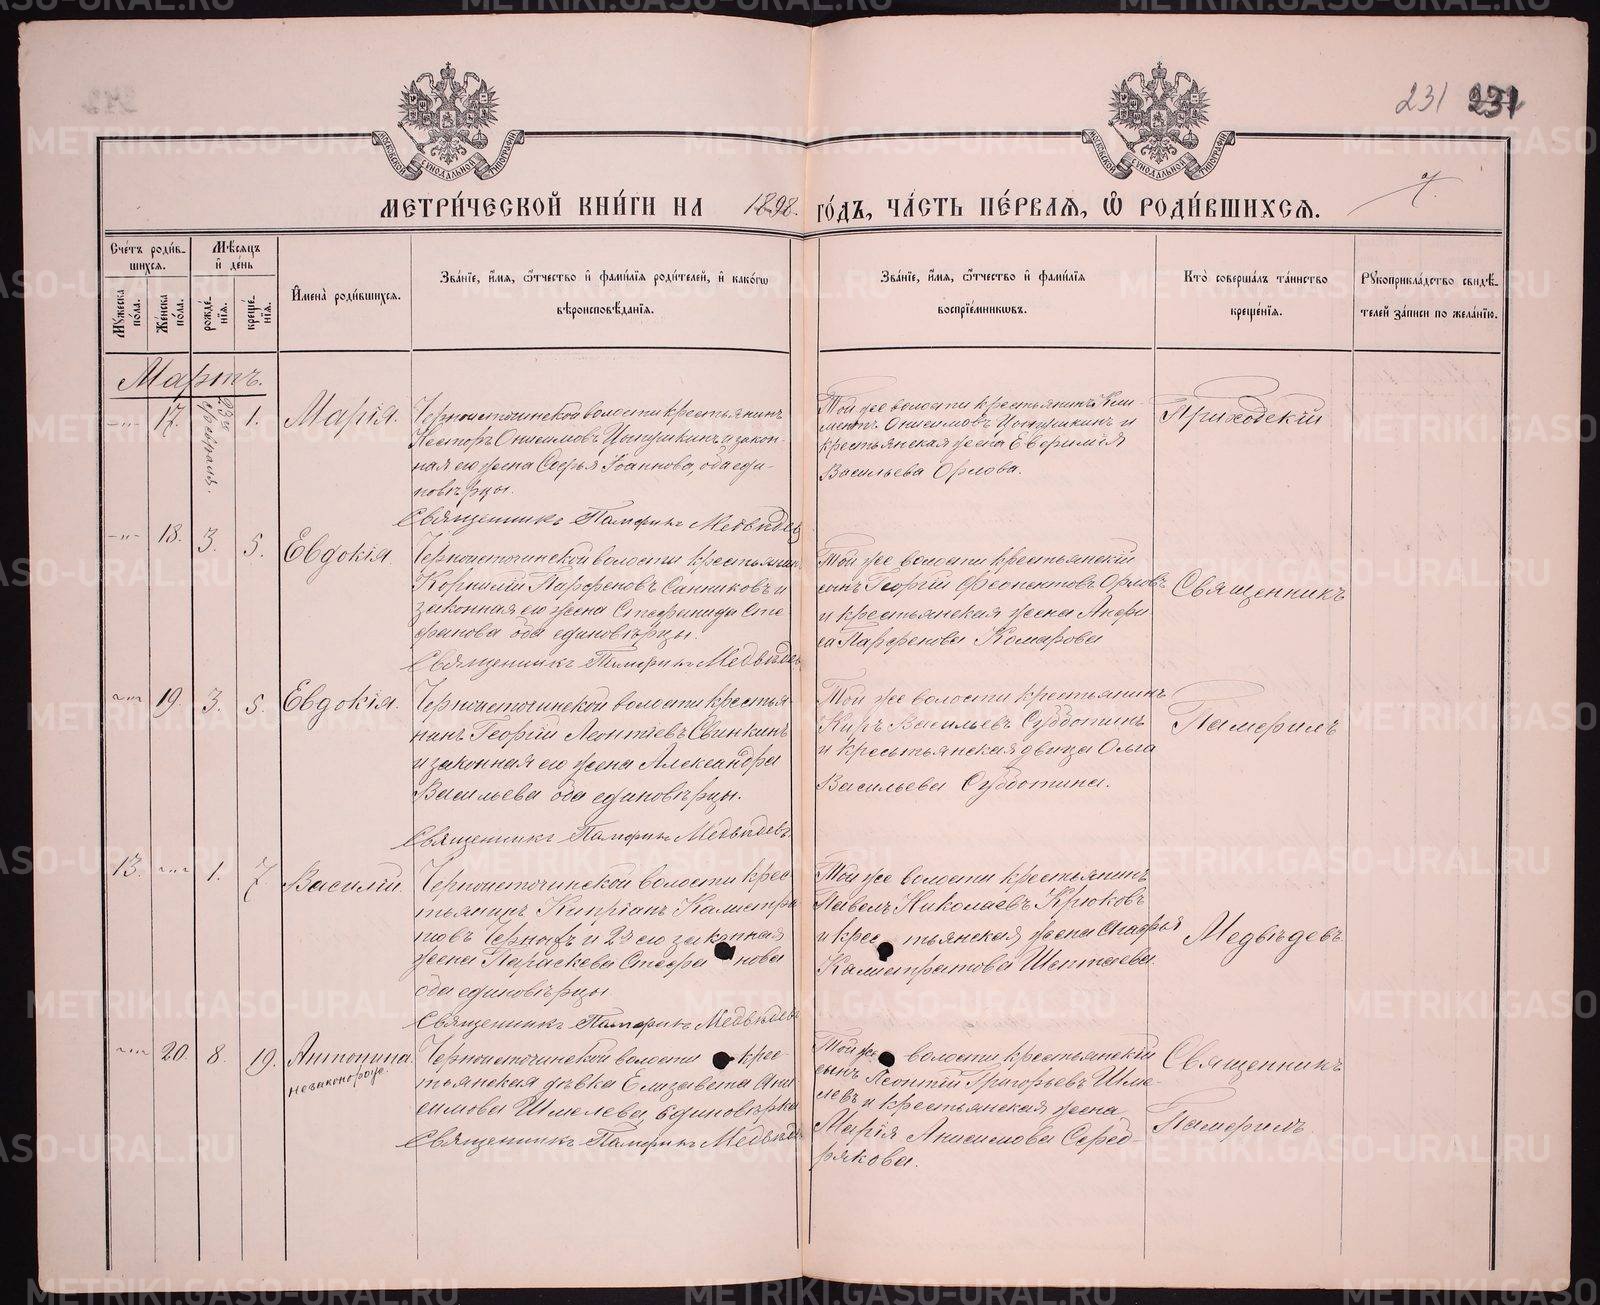 231 231
МЕТРИ́ЧЕСКОЙ КНИ́ГИ НА 1898. ГО́ДЪ, ЧА́СТЬ ПЕ́РВАЯ, Ѿ РОДИ́ВШИХСЯ.
Сче́тъ роди́вшихся.
Му́жеска по́ла.
Же́нска по́ла.
Мѣ́сяцъ и де́нь
рожде́нїя.
креще́нїя.
И҆мена̀ роди́вшихся.
Зва́нїе, и҆́мя, ѻ҆́тчество и҆ фами́лїя роди́телей, и҆ како́гѡ
вѣроисповѣ́данїя.
Зва́нїе, и҆́мя, ѻ҆́тчество и҆ фами́лїя
воспрїе́мникѡвъ.
Кто̀ соверша́лъ та́инство
креще́нїя.
Рꙋкоприкла́дство свидѣ́-
телей за́писи по жела́нїю.
Мартъ.
-"- 17. 23го февраля. 1. Марія.
Черноисточинской волости крестьянинъ
Несторъ Онисимовъ и закон-
ная его жена Софья Іоаннова, оба еди-
новѣрцы.
Священникъ Памфилъ Медвѣдевъ
Той же волости крестьянинъ Кли-
ментъ Онисимовъ и
крестьянская жена Евфимія
Васильева Орлова.
Приходскій
-"- 18. 3. 5. Евдокія.
Черноисточинской волости крестьянин
Корнилій Парфеновъ Санниковъ и
законная его жена Стефанида Сте-
фанова оба единовѣрцы.
Священникъ Памфилъ Медвѣдевъ
Той же волости крестьянскій
сынъ Георгій Феоктистовъ Орловъ
и крестьянская жена Анфи-
са Парфенова Комарова
Священникъ
-"- 19. 3. 5. Евдокія.
Черноисточинской волости крестья-
нинъ Георгій Леонтіевъ Свинкинъ
и законная его жена Александра
Васильева оба единовѣрцы.
Священникъ Памфилъ Медвѣдевъ.
Той же волости крестьянинъ
Киръ Васильевъ Субботинъ
и крестьянская дѣвица Ольга
Васильева Субботина.
Памфилъ
13. -"- 1. 7. Василій.
Черноисточинской волости крес-
тьянинъ Кипріанъ Калистра-
товъ и 2я его законная
жена Параскева Стефанова
оба единовѣрцы
Священникъ Памфилъ Медвѣдевъ
Той же волости крестьянинъ
Павелъ Николаевъ Крюковъ
и крестьянская жена
Калистратова Шептаева.
Медвѣдевъ.
-"- 20. 8. 19. Антонина.
незаконорожд.
Черноисточинской волости крес-
тьянская дѣвка Елизавета Ани-
симова Шмелева, единовѣрка
Священникъ Памфилъ Медвѣдевъ
Той же волости крестьянскій
сынъ Леонтій Григорьевъ Шме-
левъ и крестьянская жена
Марія Анисимова Серед-
рякова.
Священникъ
Памфилъ